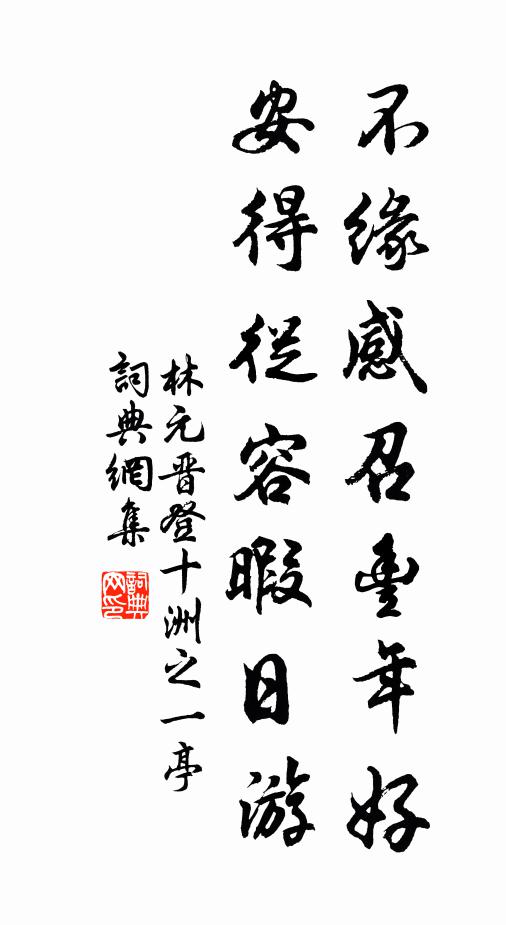 不緣感召豊年好
安得從容暇日游
林元晋登十洲之一亭
詞典網集
詞典
网印